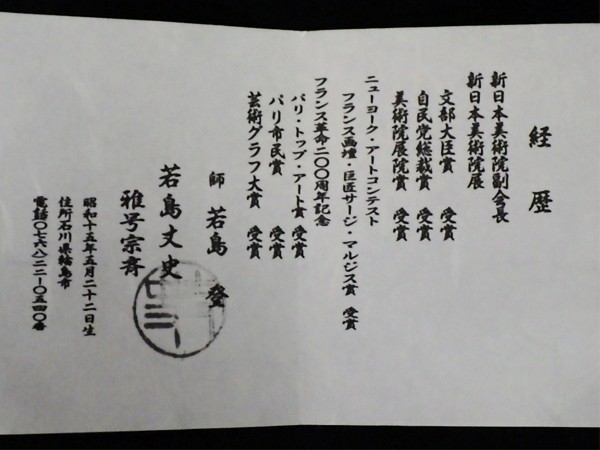 経歴
新日本美術院副会長
新日本美術院展
文部大臣賞 受賞
自民党総裁賞 受賞
美術院展院賞 受賞
ニューヨーク・アートコンテスト
フランス画壇・巨匠サージ・マルジス賞 受賞
フランス革命二〇〇周年記念
パリ・トップ・アート賞 受賞
パリ市民賞 受賞
芸術グラフ大賞 受賞
師 若島 登
若島丈史
雅号宗斉
昭和十五年五月二十二日生
住所石川県輪島市
電話〇七六八二二-〇五四〇番